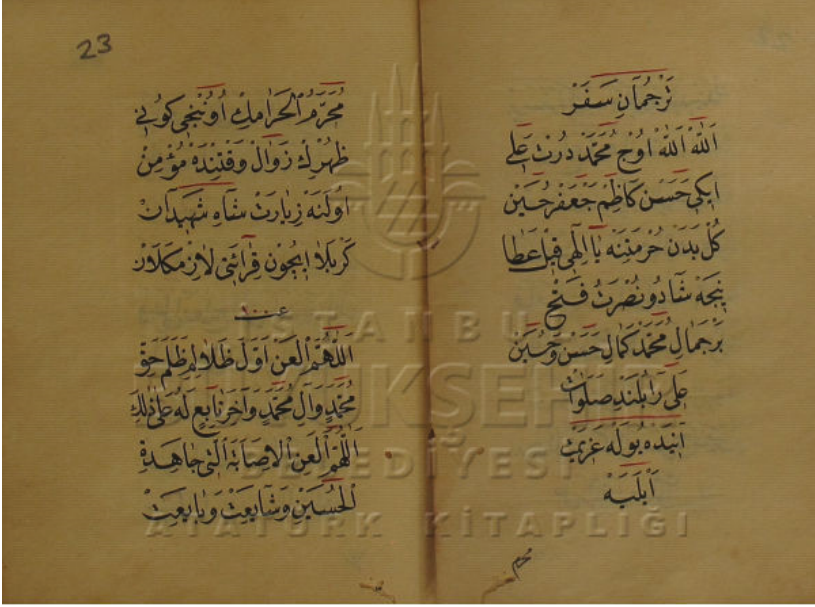 تَرْجُمَانِ سَفَرْ
اَللّٰهْ اَللّٰهْ اوُچْ مُحَمَّدْ دُرْتْ عَلِي
ايكى حَسَنْ كَاظِمْ جَعْفَرْ حُسَيْن
كُلْ بَدَنْ حُرْمَتِنَه يَا اِلٰهِي قِيلْ عَطَا
نِيجَهْ شَادُو نُصْرَتُ فَتْحْ
بَرْجَمَالِ مُحَمَّدْ كَمَالِ حَسَنْ وَحُسَيْن
عَلِى رَا بُلَنْدِ صَلَوَاتْ
اَنِيدَه بُويلَه
23
مُحَرَّمُ الْحَرَامِكْ اوُنُنْجِى كُونِى
ظُهْرِكْ زَوَالْ وَقْتِنْدَهْ مُؤْمِنْ
اوُلَنَهْ زِيَارَتْ شَاهِ شَهِيدَانْ
كَرْبَلَا ايچُونْ قِرَائَتِى لَازِمْكَلَانْ
اَللّٰهُمَّ الْعَنْ اَوَّلَ ظَالِمٍ ظَلَمَ حَقَّ
مُحَمَّدٍ وَالِ مُحَمَّدٍ وَآخِرَ تَابِعٍ لَهُ عَلَى ذٰلِكَ
اَللّٰهُمَّ الْعَنِ الْاِصَابَةَ الَّتِى جَاهَدَةِ
الْحُسَيْنِ وَشَايَعَتْ وَبَايَعَتْ
محرم
İSTANBUL
BÜYÜKŞEHİR
BELEDİYESİ
ATATÜRK KİTAPLIĞI